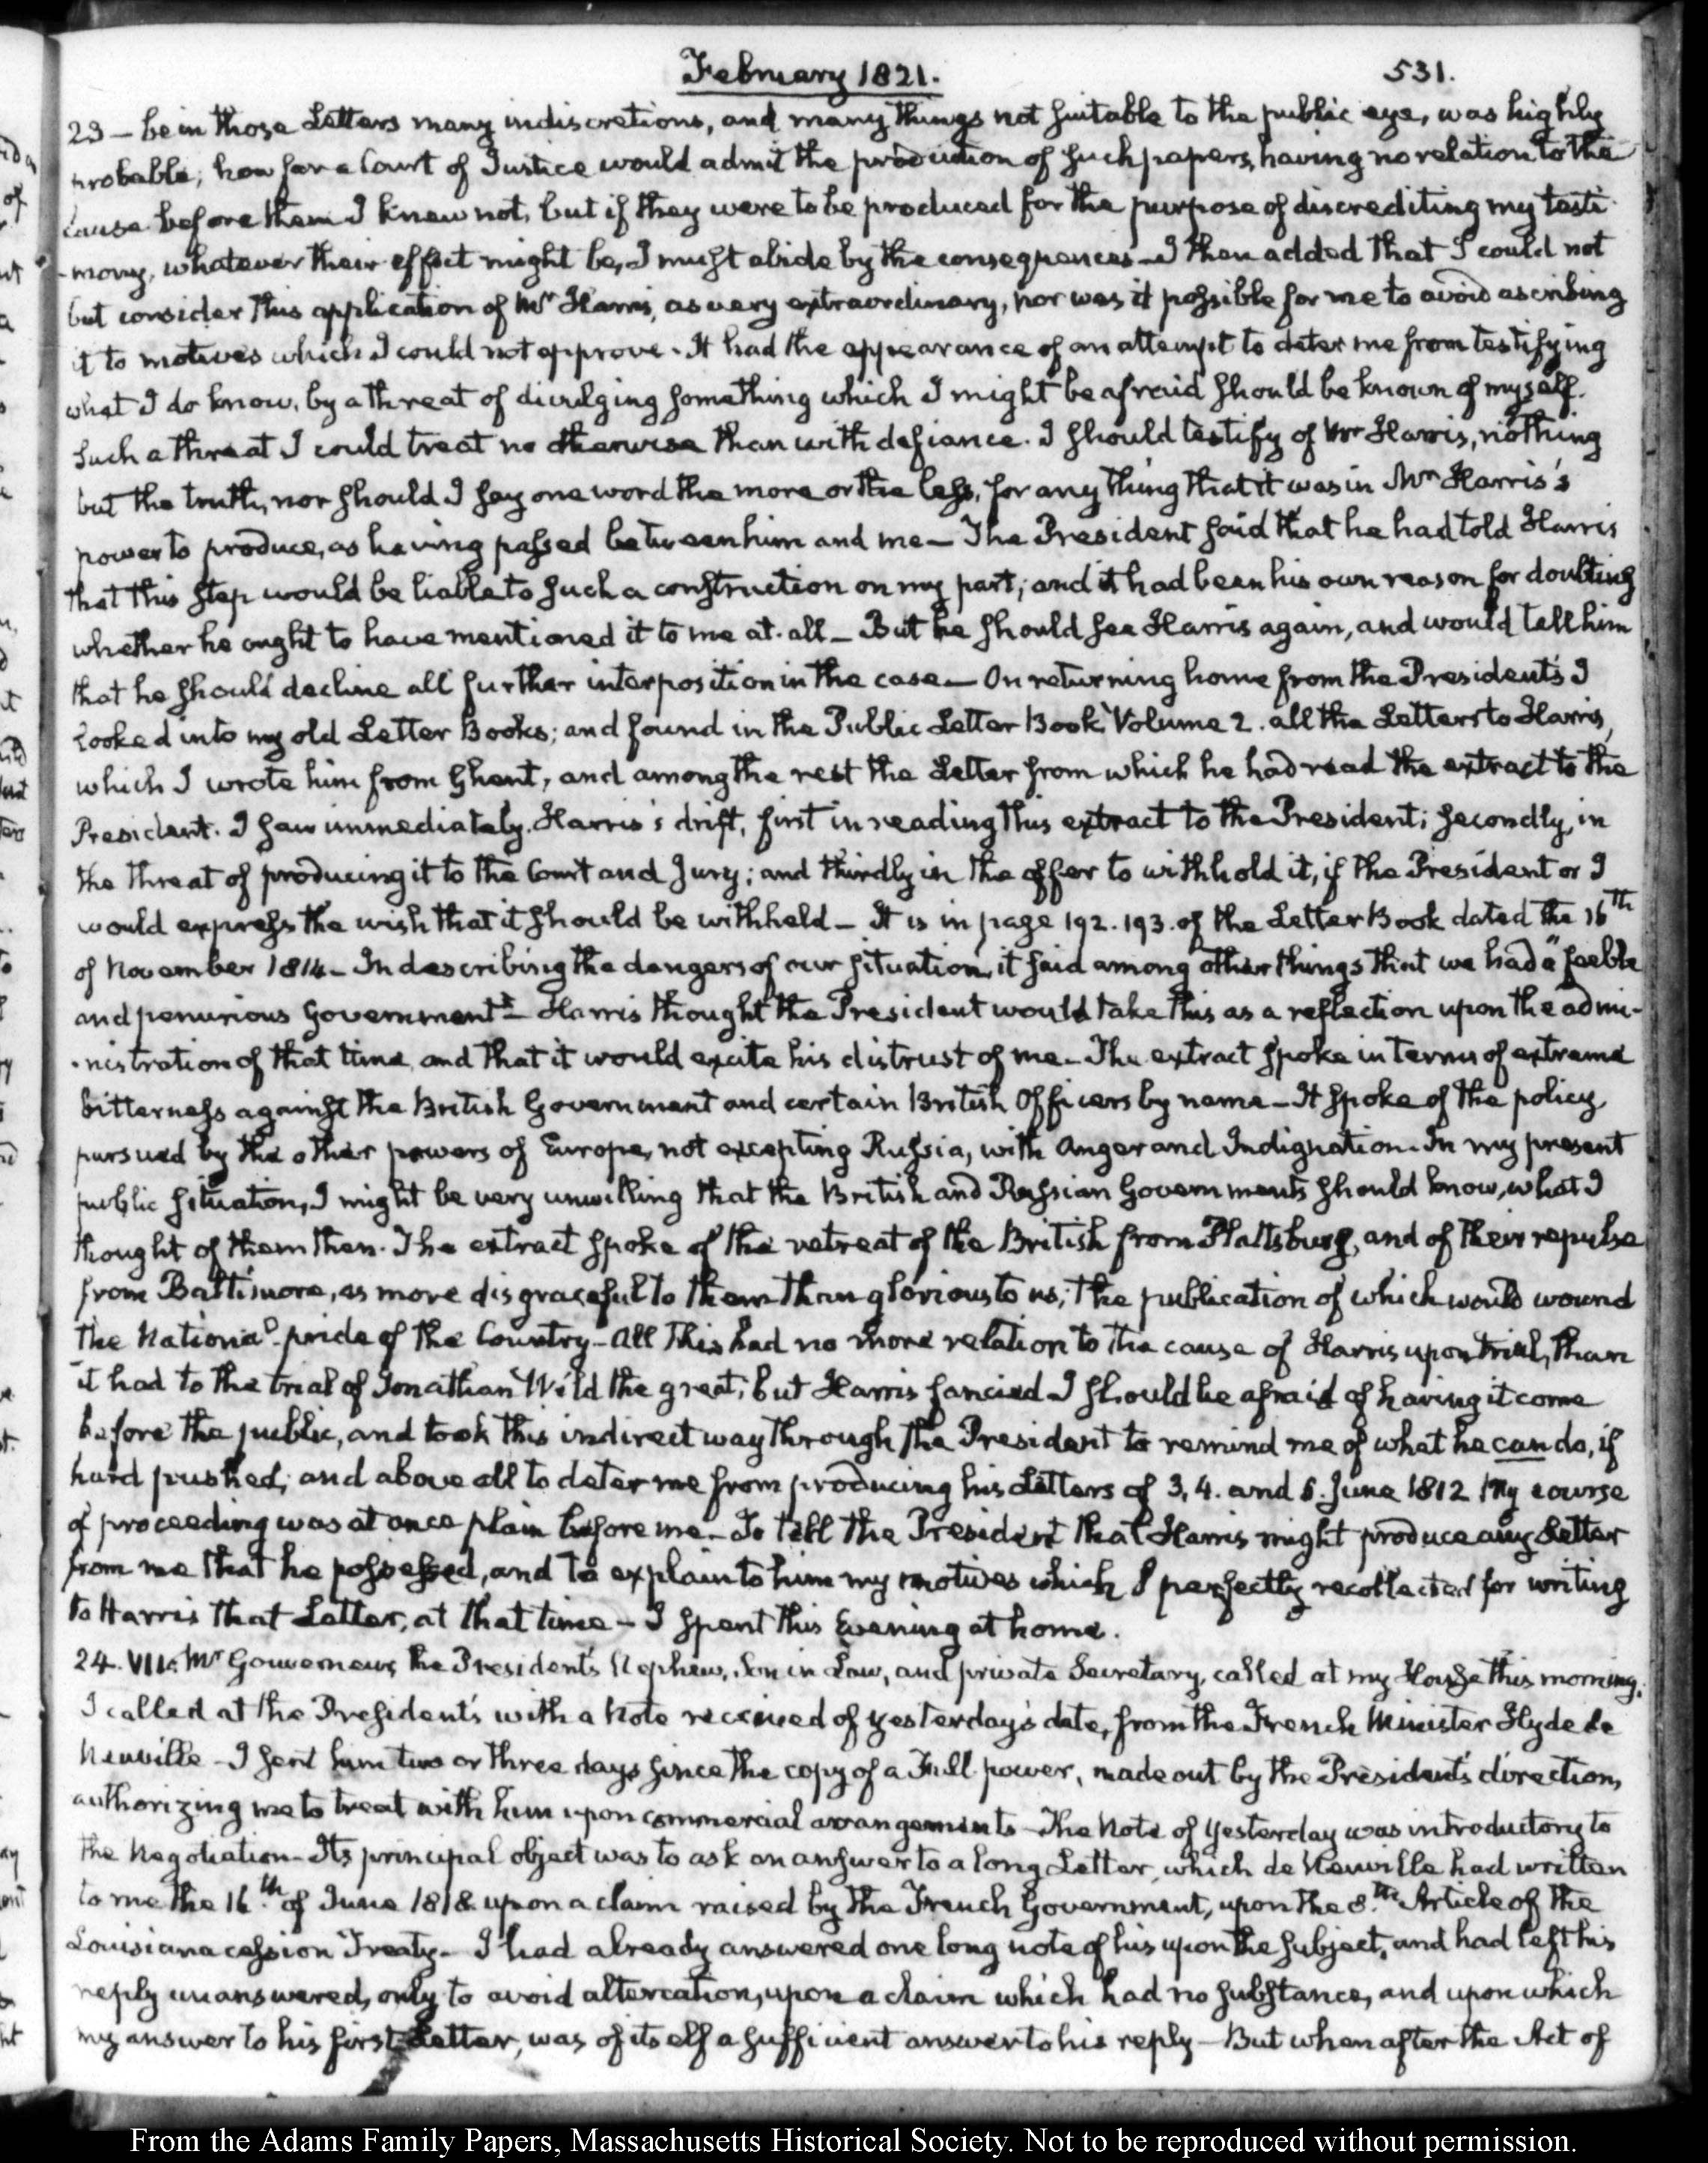 February 1821.
531.
23 – be in those Letters many indiscretions, and many things not suitable to the public eye, was highly
probable; how far a Court of Justice would admit the production of such papers, having no relation to the
cause before them I knew not, but if they were to be produced for the purpose of discrediting my testi
-mony, whatever their effect might be, I must abide by the consequences – I then added that I could not
but consider this application of Mr Harris, as very extraordinary, nor was it possible for me to avoid ascribing
it to motives which I could not approve. It had the appearance of an attempt to deter me from testifying
what I do know, by a threat of divulging something which I might be afraid should be known of myself.
Such a threat I could treat no otherwise than with defiance. I should testify of Mr Harris, nothing
but the truth, nor should I say one word the more or the less, for any thing that it was in Mr Harris's
power to produce, as having passed between him and me – The President said that he had told Harris
that this step would be liable to such a construction on my part; and it had been his own reason for doubting
whether he ought to have mentioned it to me at all – But he should see Harris again, and would tell him
that he should decline all further interposition in the case – On returning home from the President's I
looked into my old Letter Books; and found in the Public Letter Book Volume 2. all the Letters to Harris,
which I wrote him from Ghent, and among the rest the Letter from which he had read the extract to the
President. I saw immediately Harris's drift, first in reading this extract to the President; secondly, in
the threat of producing it to the Court and Jury; and thirdly in the offer to withhold it, if the President or I
would express the wish that it should be withheld – It is in page 192. 193. of the Letter Book dated the 16th
of November 1814 – In describing the dangers of our situation, it said among other things that we had "a feeble
and penurious Government" – Harris thought the President would take this as a reflection upon the admi-
-nistration of that time, and that it would excite his distrust of me – The extract spoke in terms of extreme
bitterness against the British Government and certain British Officers by name – It spoke of the policy
pursued by the other powers of Europe, not excepting Russia, with Anger and Indignation. In my present
public situation, I might be very unwilling that the British and Russian Governments should know, what I
thought of them then. The extract spoke of the retreat of the British from Plattsburg, and of their repulse
from Baltimore, as more disgraceful to them than glorious to us; the publication of which would wound
the National pride of the Country – All this had no more relation to the cause of Harris upon trial, than
it had to the trial of Jonathan Wild the great; but Harris fancied I should be afraid of having it come
before the public, and took this indirect way through the President to remind me of what he can do, if
hard pushed; and above all to deter me from producing his Letters of 3, 4. and 5. June 1812 My course
of proceeding was at once plain before me – To tell the President that Harris might produce any Letter
from me that he possessed, and to explain to him my motives which I perfectly recollected for writing
to Harris that Letter, at that time – I spent this Evening at home.
24. VII. Mr Gouverneur, the President's Nephew, Son in Law, and private Secretary, called at my House this morning.
I called at the President's with a Note received of yesterday's date, from the French Minister Hyde de
Neuville – I sent him two or three days since the copy of a Full power, made out by the President's direction,
authorizing me to treat with him upon commercial arrangements – The Note of yesterday was introductory to
the Negotiation – Its principal object was to ask an answer to a long Letter, which de Neuville had written
to me the 16th of June 1818 upon a claim raised by the French Government, upon the 8th Article of the
Louisiana cession Treaty – I had already answered one long note of his upon the subject, and had left his
reply unanswered, only to avoid altercation, upon a claim which had no substance, and upon which
my answer to his first Letter, was of itself a sufficient answer to his reply – But when after the Act of
From the Adams Family Papers, Massachusetts Historical Society. Not to be reproduced without permission.